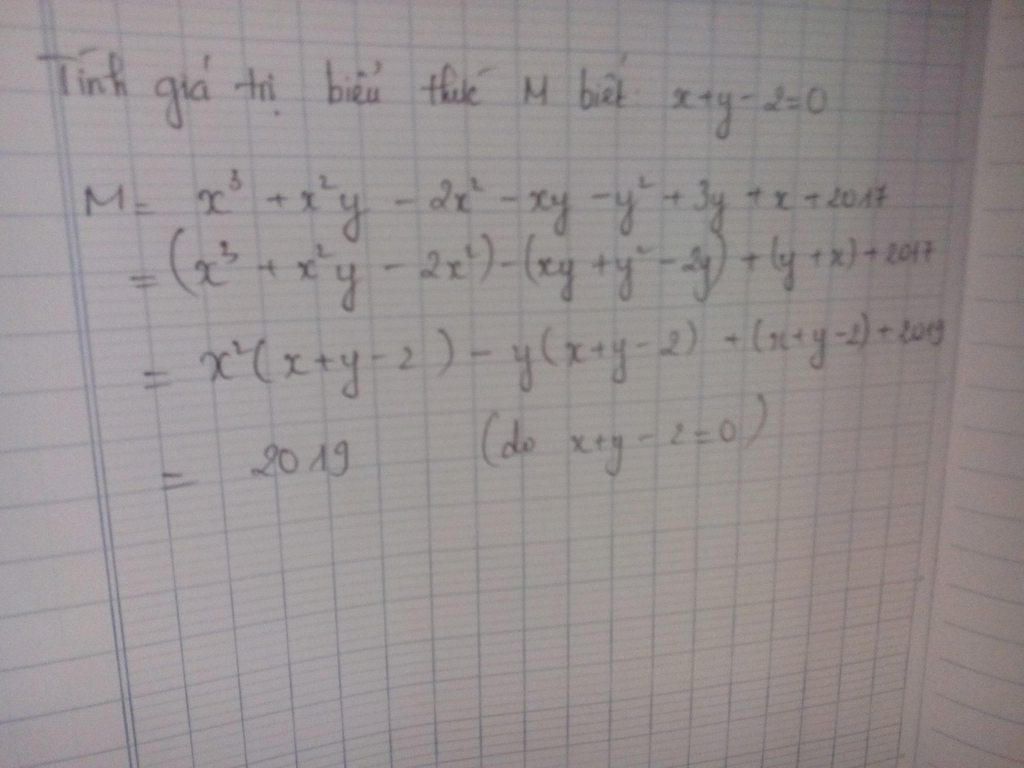 Tính giá trị biểu thức M biết x+y-2=0
M= x³ + x²y - 2x² - xy - y² + 3y + x + 2017
= (x³ + x²y - 2x²) - (xy + y² - 2y) + (y+x) + 2017
= x²(x+y-2) - y(x+y-2) + (x+y-2) + 2019
= 2019 (do x+y-2=0)